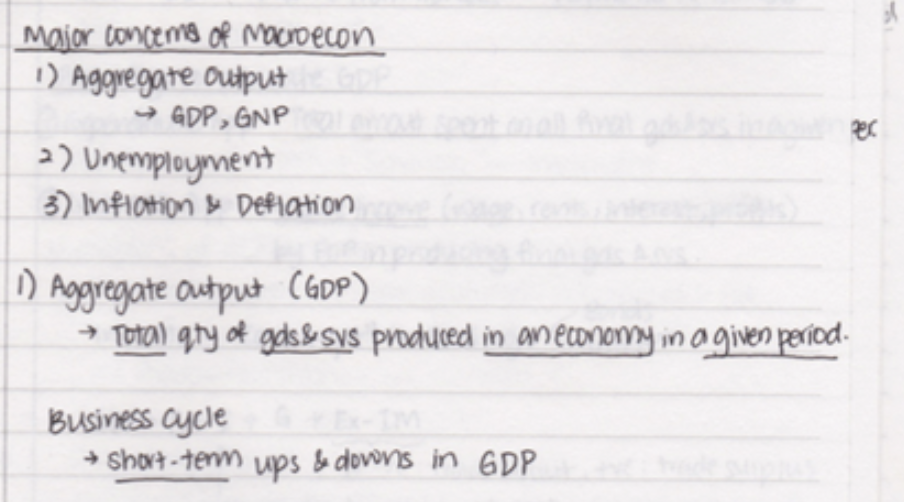 Major concerns of Macroecon
1) Aggregate output
→ GDP, GNP
2) Unemployment
3) Inflation & Deflation
1) Aggregate output (GDP)
→ Total qty of gds & svs produced in an economy in a given period.
Business cycle
→ short-term ups & downs in GDP